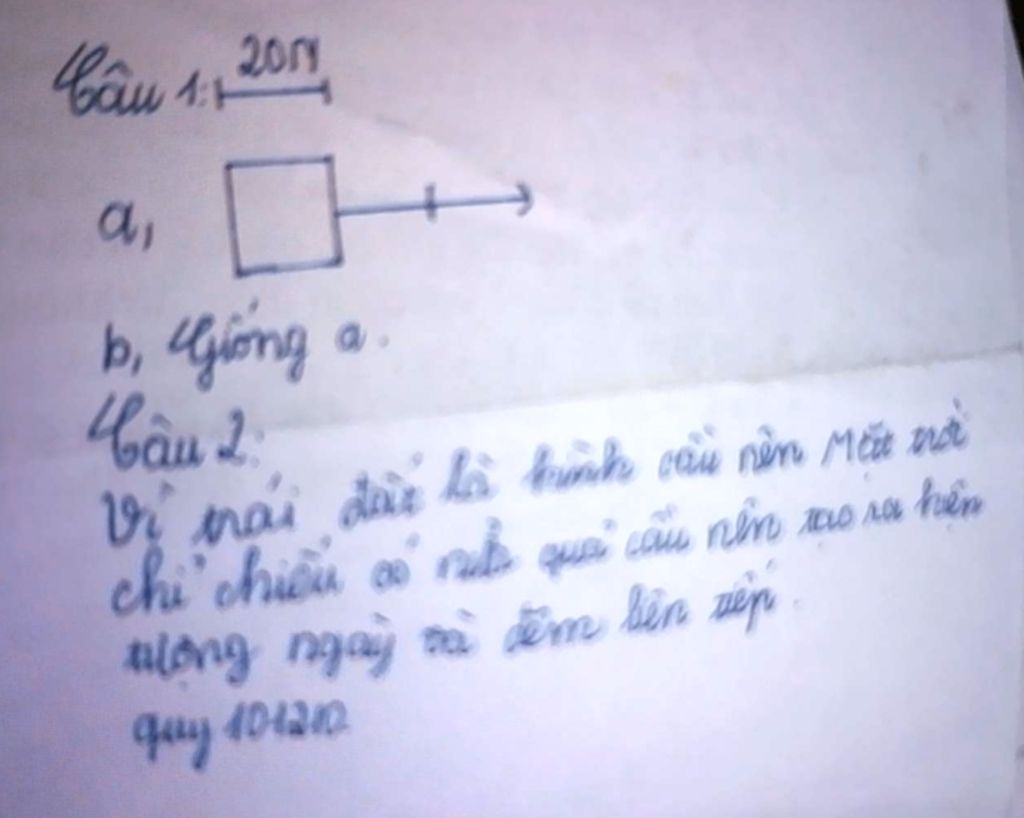 Câu 1: 20N
a,
b, Giống a.
Câu 2:
Vì trái đất là hình cầu nên Mặt trời
chỉ chiếu có nửa quả cầu nên tạo ra hiện
tượng ngày và đêm liên tiếp.
quy 101210